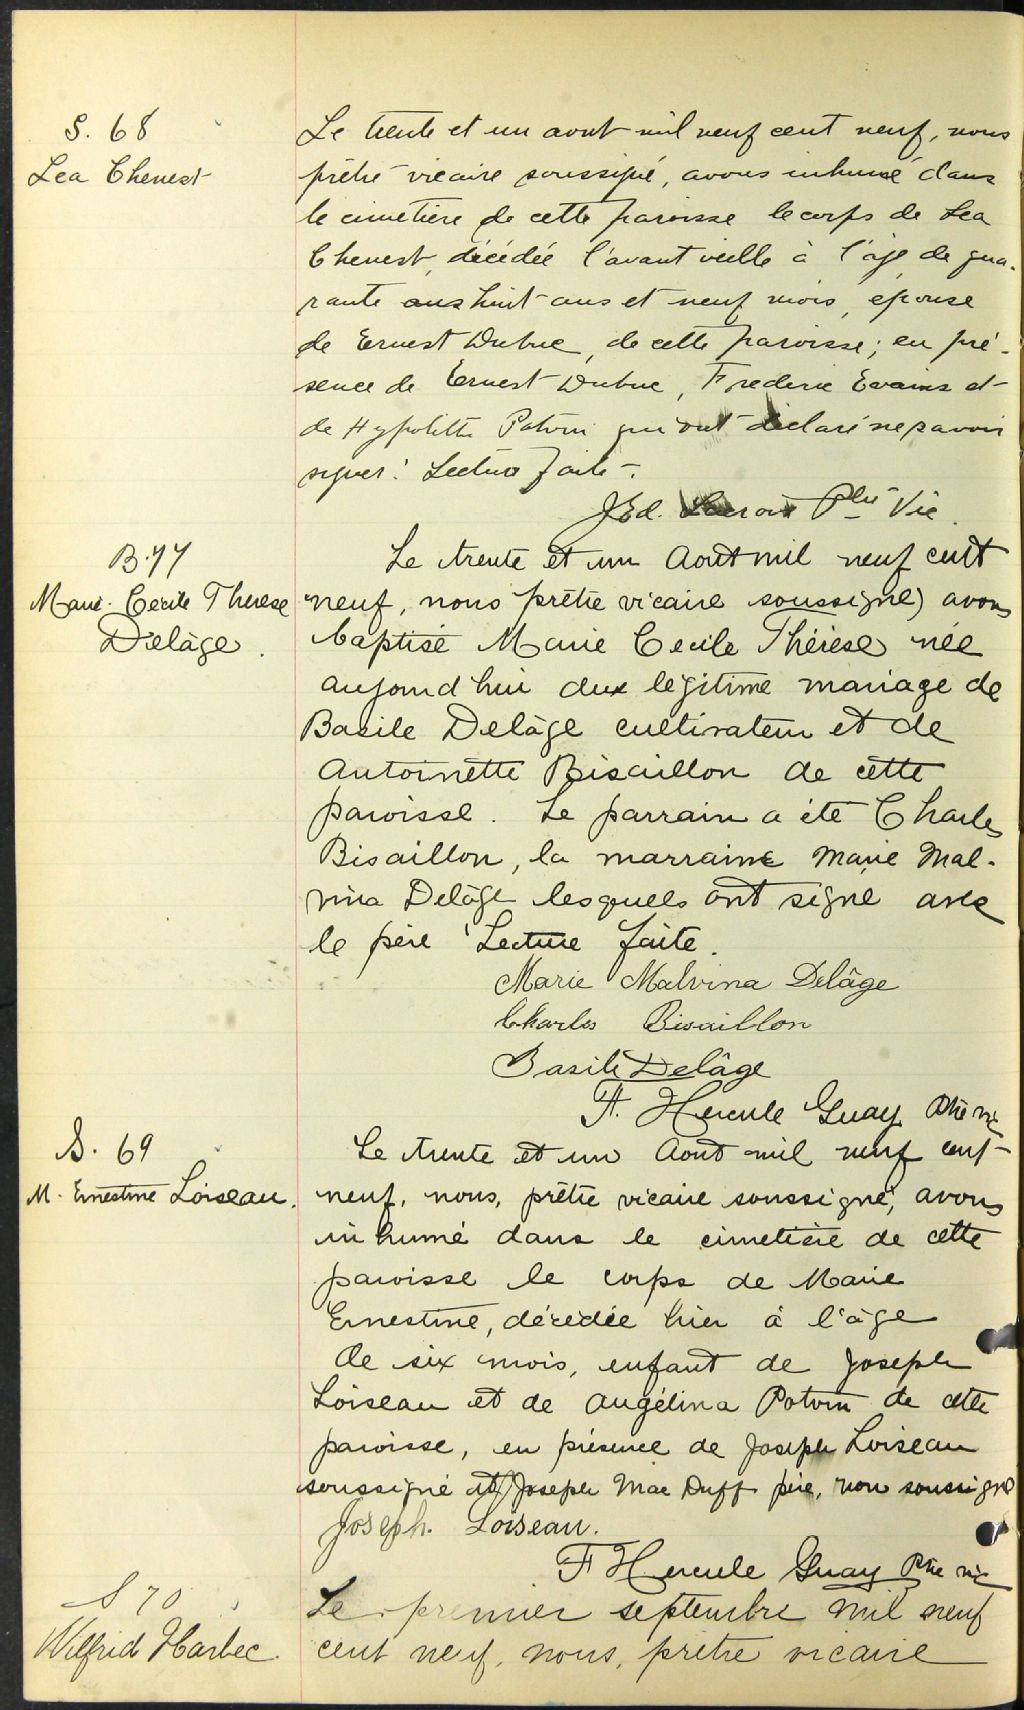 S. 68
Lea Chenest
Le trente et un aout mil neuf cent neuf, nous
prêtre vicaire soussigné, avons inhumé dans
le cimetière de cette paroisse le corps de Lea
Chenest, décédée l'avant veille à l'âge de qua-
rante ans huit ans et neuf mois, épouse
de Ernest Dubuc, de cette paroisse; en pré-
sence de Ernest Dubuc, Frederic Evains et
de Hypolitte Potvin qui ont déclaré ne savoir
signer. Lecture faite.
JEd. Ptre Vic.
B. 77
Marie Cecile Therese
Delâge.
Le trente et un Aout mil neuf cent
neuf, nous prêtre vicaire soussigné) avons
baptisé Marie Cecile Thérèse née
aujourd'hui du légitime mariage de
Basile Delâge cultivateur et de
Antoinette Bisaillon de cette
paroisse. Le parrain a été Charles
Bisaillon, la marraine Marie Mal-
vina Delâge lesquels ont signé avec
le père Lecture faite.
Marie Malvina Delâge
Charles Bisaillon
Basile Delâge
F. Hercule Guay Ptre vic
S. 69
M. Ernestine Loiseau.
Le trente et un Aout mil neuf cent
neuf, nous, prêtre vicaire soussigné, avons
inhumé dans le cimetière de cette
paroisse le corps de Marie
Ernestine, décédée hier à l'âge
de six mois, enfant de Joseph
Loiseau et de Angélina Potvin de cette
paroisse, en présence de Joseph Loiseau
soussigné et Joseph Mac Duff père, non soussigné
Joseph. Loiseau.
F Hercule Guay Ptre vic
S 70
Wilfrid Harbec.
Le premier septembre mil neuf
cent neuf, nous, prêtre vicaire